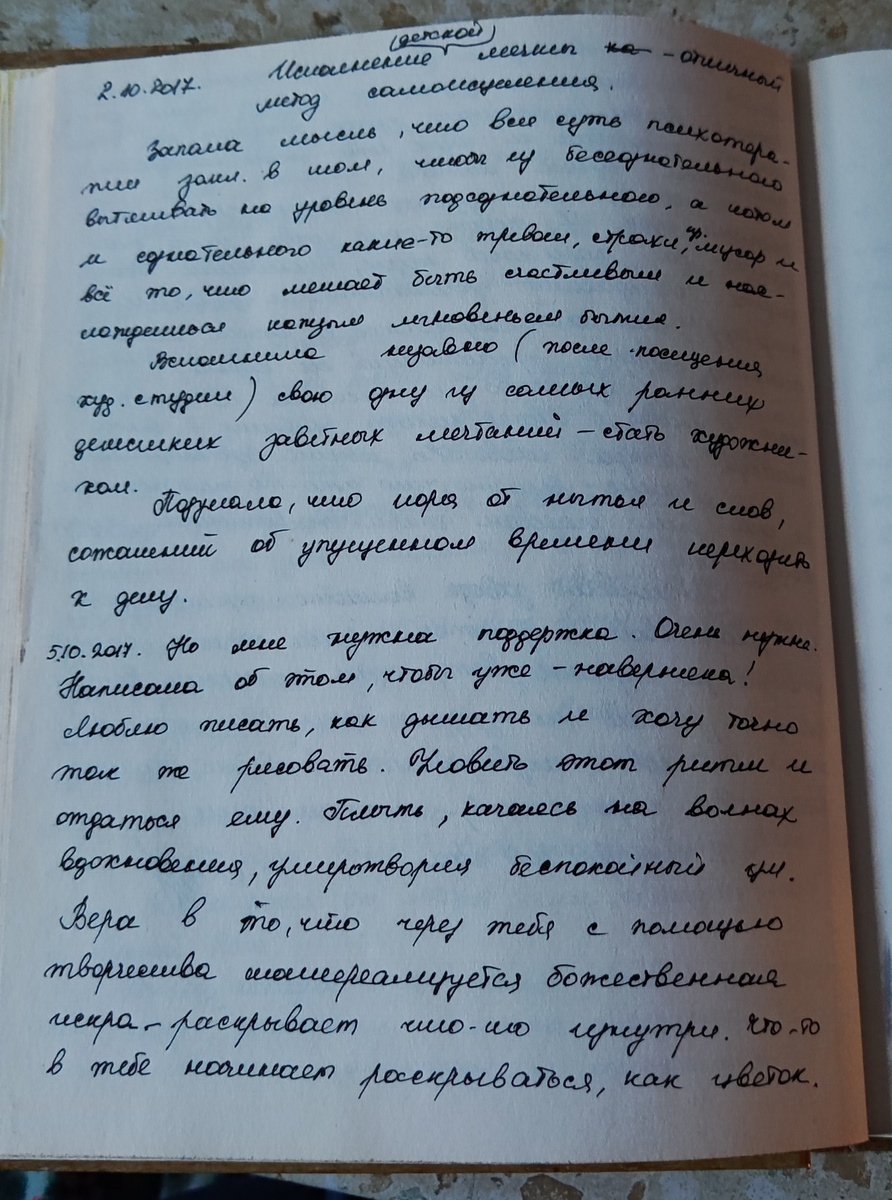 (детской)
2.10.2017. Исполнение мечты на - отличный
метод самоисцеления.
Запала мысль, что вся суть психотера-
пии закл. в том, чтобы из бессознательного
вытягивать на уровень подсознательного, а потом
и сознательного какие-то тревоги, страхи, мусор и
всё то, что мешает быть счастливым и нас-
лаждаться каждым мгновеньем бытия.
Вспомнила недавно (после посещения
худ. студии) свою одну из самых ранних
детских заветных мечтаний - стать художни-
ком.
Подумала, что пора от нытья и слов,
сожалений об упущенном времени переходить
к делу.
5.10.2017. Но мне нужна поддержка. Очень нужна.
Написала об этом, чтобы уже - наверняка!
Люблю писать, как дышать и хочу точно
так же рисовать. Уловить этот ритм и
отдаться ему. Плыть, качаясь на волнах
вдохновения, умиротворяя беспокойный ум.
Вера в то, что через тебя с помощью
творчества материализуется божественная
искра - раскрывает что-то изнутри. Что-то
в тебе начинает раскрываться, как цветок.